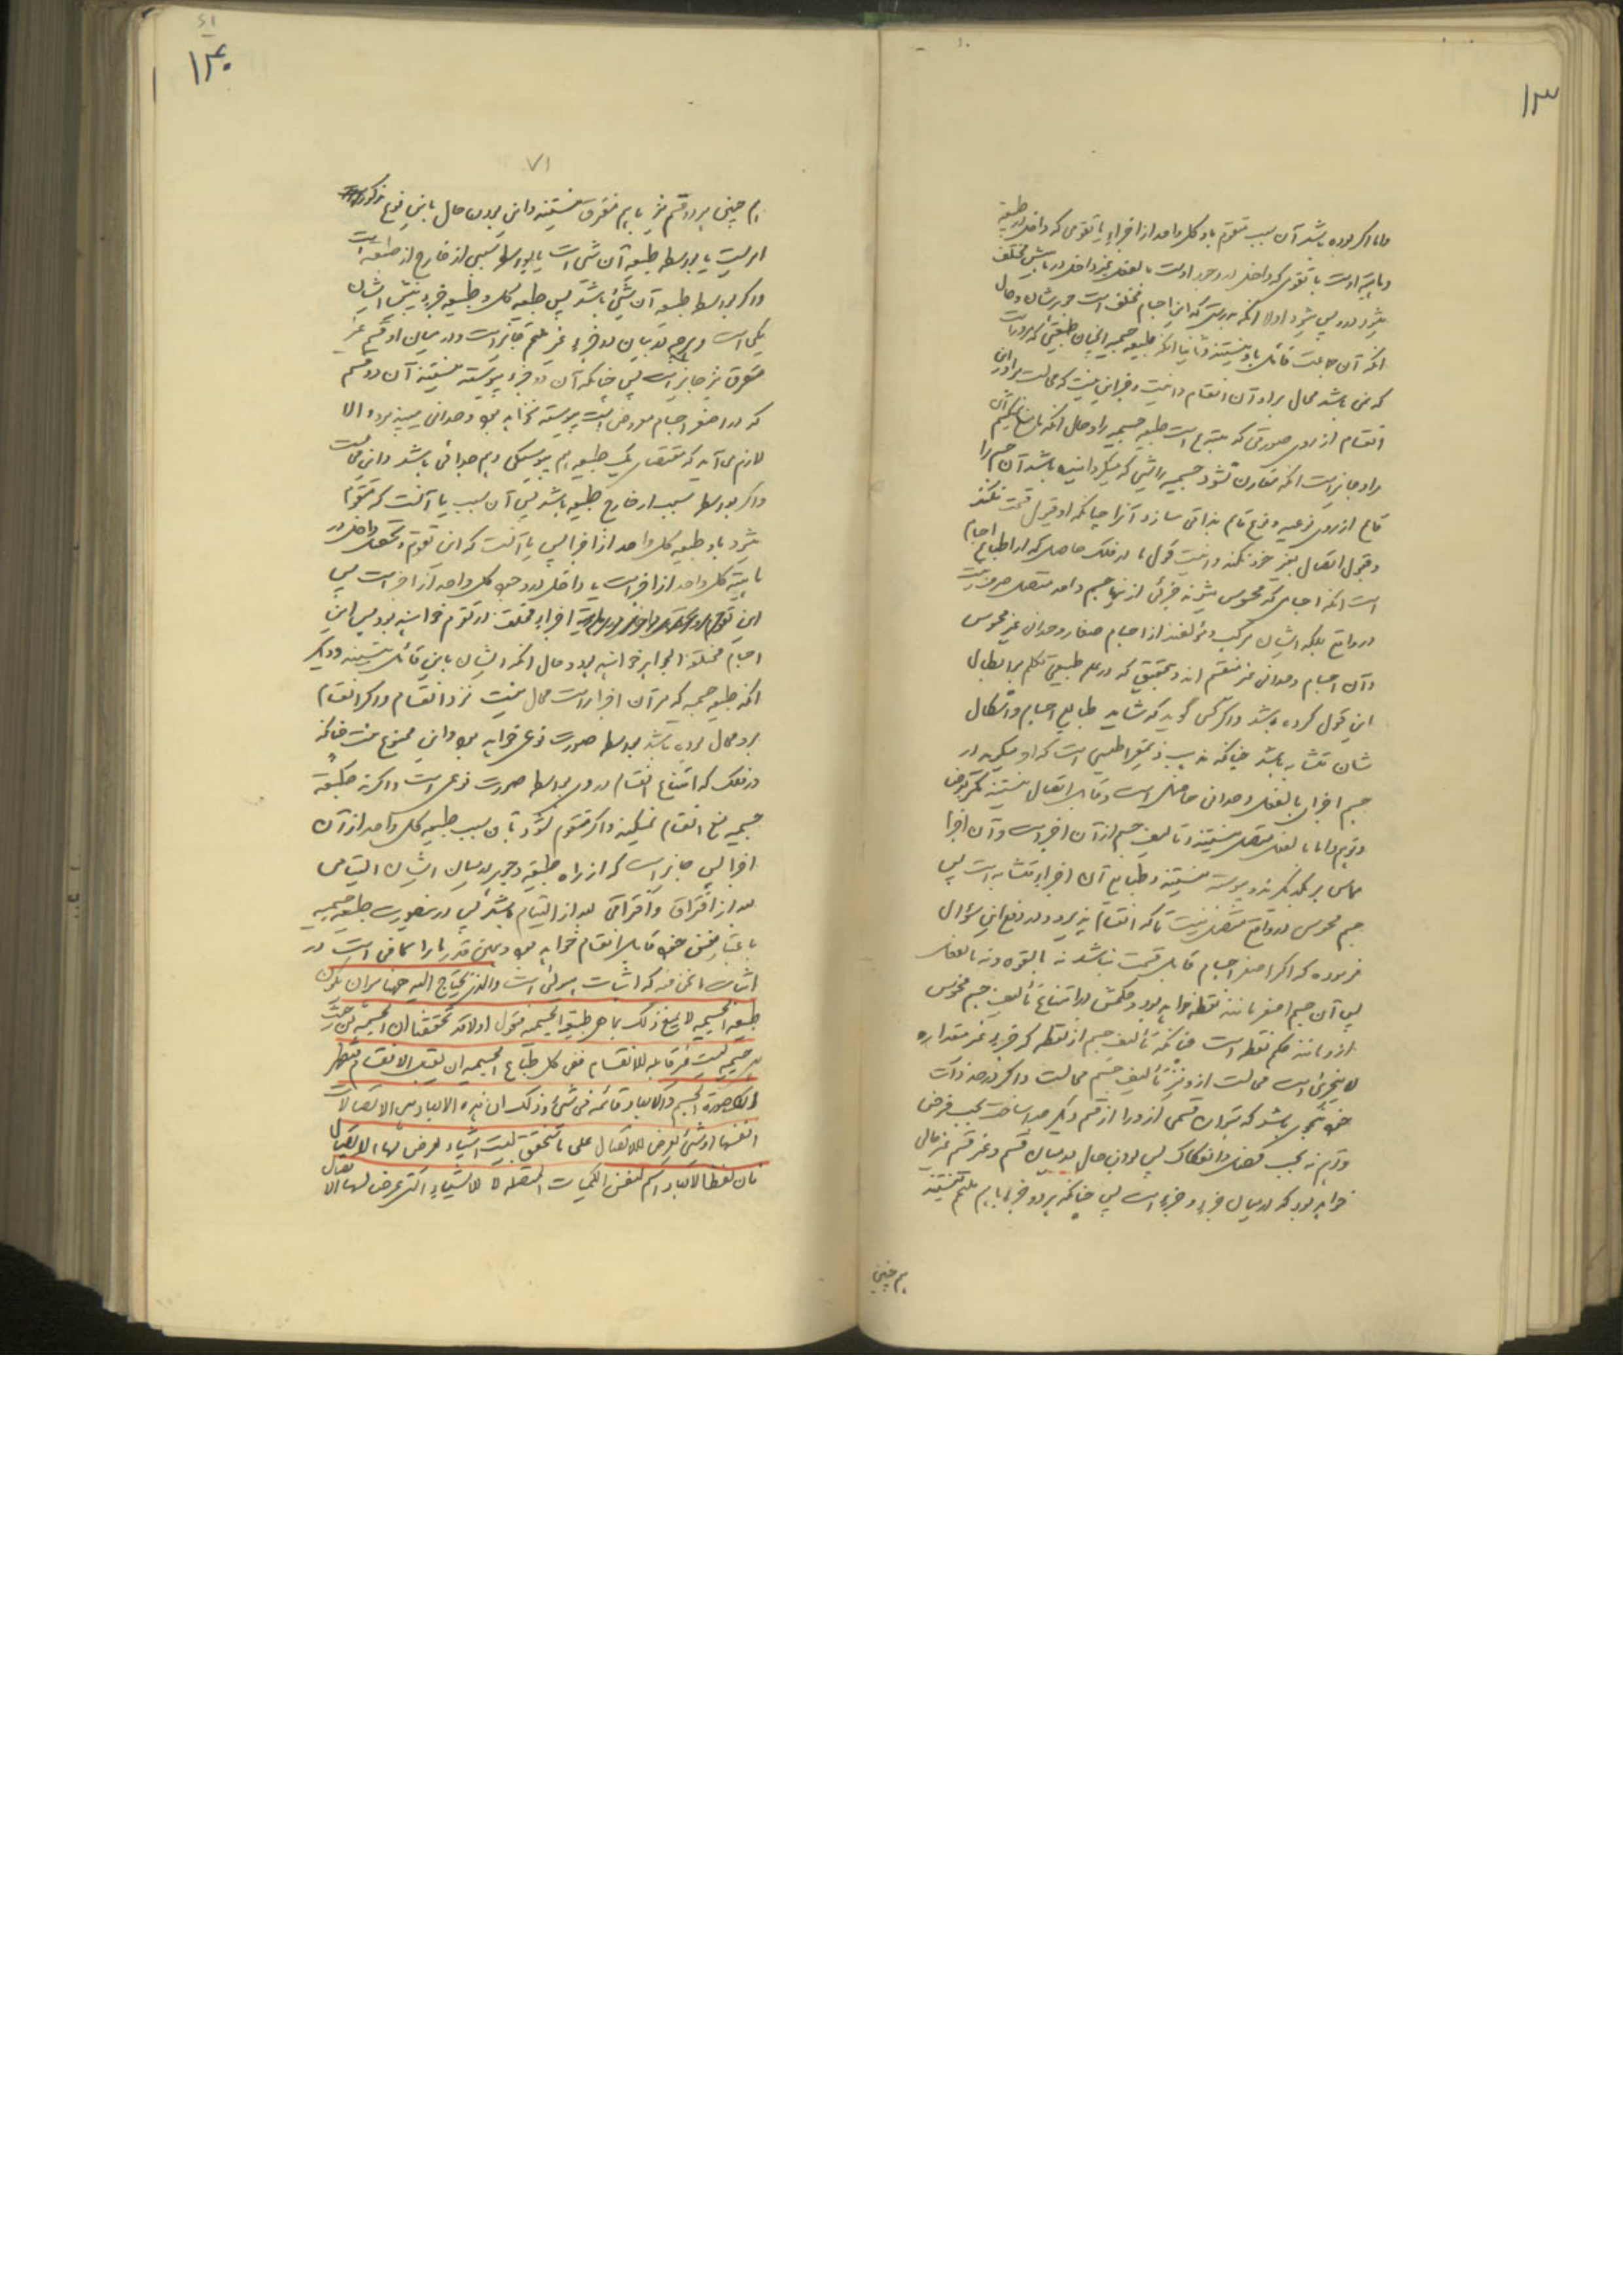 ۱۳
واما اگر بوده باشد آن سبب متقوم باو کل واحد از اجزاء یا تقومی که داخل در طبیعة
وماهیة اوست یا تقومی که داخل در وجود اوست بالفعل غیر داخل در ماهیتش مختلف
اولا آنکه این اجسام مختلف است جوهرشان و حال
آنکه آن جماعت قائل باو نیستند و ثانیا آنکه طبیعه جسمیه
که می باشد محال براو آن انقسام
انقسام از روی صورتی که طبیعه جسمیه را و حال آنکه ما منع نمیکنیم
براو جایز است آنکه مقارن شود جسمیه را شیئی که میگرداند باشد آن جسم را
قائم از روی نوعیه و نوع تام بذاتی سازد آنرا چنانکه او قبول قسمت نکند
وقبول اتصال بغیر خود نکند و اینست قول ما در فلک حاصل که
است آنکه اجسامی که محسوس میشوند جزئی از اینها جسم واحد متصل صرف نیست
در واقع بلکه ایشان مرکب و مؤلفند از اجسام صغار وحدانی غیر محسوس
و آن اجسام وحدانی غیر منقسم اند و بتحقیق که در علم طبیعی تکلم بر ابطال
این قول کرده باشد و اگر کسی گوید که شاید طبایع اجسام و اشکال
شان متشابه باشد چنانکه مذهب ذیمقراطیس است که او میگوید در
جسم اجزای بالفعل وحدانی حاصل است و قابل اتصال نیستند مگر بفرض
و توهم و اما بالفعل متصل نیستند و تألیف جسم از آن اجزا است و آن اجزا
مماس بر یکدیگرند و پیوسته نیستند و طبایع آن اجزاء متشابه است پس
جسم محسوس در واقع متصل نیست تا که انقسام پذیرد و در دفع این سؤال
فرموده که اگر اصغر اجسام قابل قسمت نباشد نه بالقوه و نه بالفعل
پس آن جسم اصغر مانند نقطه خواهد بود و حکمش در امتناع تألیف جسم محسوس
از و مانند حکم نقطه است چنانکه تألیف جسم از نقطه که جزء غیر مقداره
لا یتجزی است محالست از و نیز تألیف جسم محالست و اگر در حد ذات
خود متجزی باشد که بتوان قسمی از و را از قسم دیگر جدا ساخت بحسب فرض
و توهم نه بحسب فصل و انفکاک پس بدون حال در میان قسم و غیر قسم غیر خالی
خواهد بود که در میان جزء و جزء است پس چنانکه هر دو جزء با هم ملتئم نیستند
هم چنین
۱۳۰
۷۱
هم چنین هر دو قسم نیز با هم متفرق نیستند و این بودن حال باین نوع مذکور
امریست یا بواسطه طبیعه آن شئ است یا بواسطه سببی از خارج از طبیعه است
و اگر بواسطه طبیعه آن شئ باشد پس طبیعه کل و طبیعه جزء ایشان
یکی است و هرچه در میان دو جزء غیر ملتئم جایز است در میان دو قسم غیر
متفرق نیز جایز است پس چنانکه آن دو جزء پیوسته نیستند آن دو قسم
که در اصغر اجسام مفروض است پیوسته نخواهد بود وحدانی پذیرد و الا
لازم می آید که مقتضای یک طبیعه هم پیوستگی و هم جدائی باشد و این محال است
و اگر بواسطه سبب از خارج طبیعه باشد پس آن سبب یا آنست که متقوم
میشود باو طبیعه کل واحد از اجزا پس یا آنست که این تقوم و تحصل داخل در
ماهیة کل واحد از اجزاست یا داخل در وجود کل واحد از اجزاست پس
این تقوم اجزاء مختلف در تقوم خواهند بود پس این
اجسام مختلفة الجواهر خواهند بود و حال آنکه ایشان باین قائل نیستند و دیگر
آنکه طبیعه جسمیه که بر آن اجزا است محال نیست نزد انقسام و اگر انقسام
بر و محال بوده باشد بواسطه صورت نوعی خواهد بود و این ممنوع نیست چنانکه
در فلک که امتناع انقسام در وی بواسطه صورت نوعی است و اگر نه طبیعة
جسمیه منع انقسام نمیکند و اگر متقوم نشود بآن سبب طبیعه کل واحد از آن
اجزا پس جایز است که از راه طبیعة و جوهر در میان ایشان التیامی
بعد از افتراق و افتراقی بعد از التیام باشد پس درینصورت طبیعه جسمیه
باعتبار نفس خود قابل انقسام خواهد بود و همین قدر ما را کافی است در
اثبات ما نحن فیه که اثبات هیولی است والذی نحتاج الیه ههنا هو ان یکون
طبیعه الجسمیه لا یمنع ذلک بما هی طبیعة الجسمیه فنقول اولا قد تحققنا ان الجسمیه من حیث
هی جسمیه لیست غیر قابله للانقسام ففی کل طباع الجسمیه ان یقبل الانقسام فیظهر
ان صورة الجسم والابعاد قائمه فی شئ و ذلک ان هذه الابعاد هی الاتصالات
انفسها او شئ یعرض للاتصال علی ما سنحققه لیست اشیاء یعرض لها الاتصال
فان لفظ الابعاد اسم لنفس الکمیات المتصله لا للاشیاء التی عرض لها الاتصال